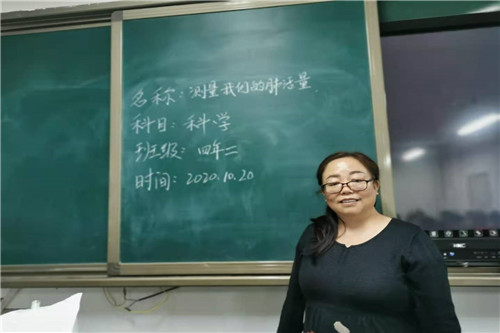 名称：测量我们的肺活量
科目：科学
班级：四年二
时间：2020.10.20